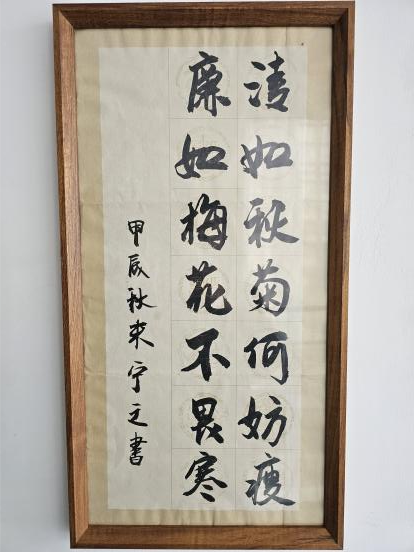 清如秋菊何妨瘦
廉如梅花不畏寒
甲辰秋来宁之書